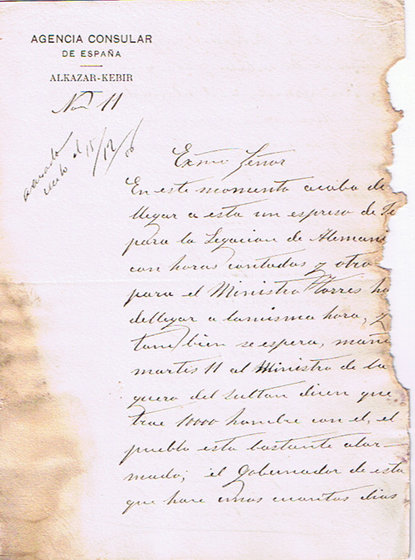 AGENCIA CONSULAR
DE ESPAÑA
ALKAZAR-KEBIR
Nº 11
el 15/12/06
Exmo Señor
En este momento acaba de
llegar a esta un espreso de Fe
para la Legacion de Aleman
con horas contadas y otro
para el Ministro Torres ha
dellegar a lamisma hora, y
tambien se espera, maña
martes 11 al Ministro de la
guera del sultan dicen que
trae 10000 hombre con el, el
pueblo esta bastante alar-
mado; el gobernador de esta
que hace unos cuantos dias